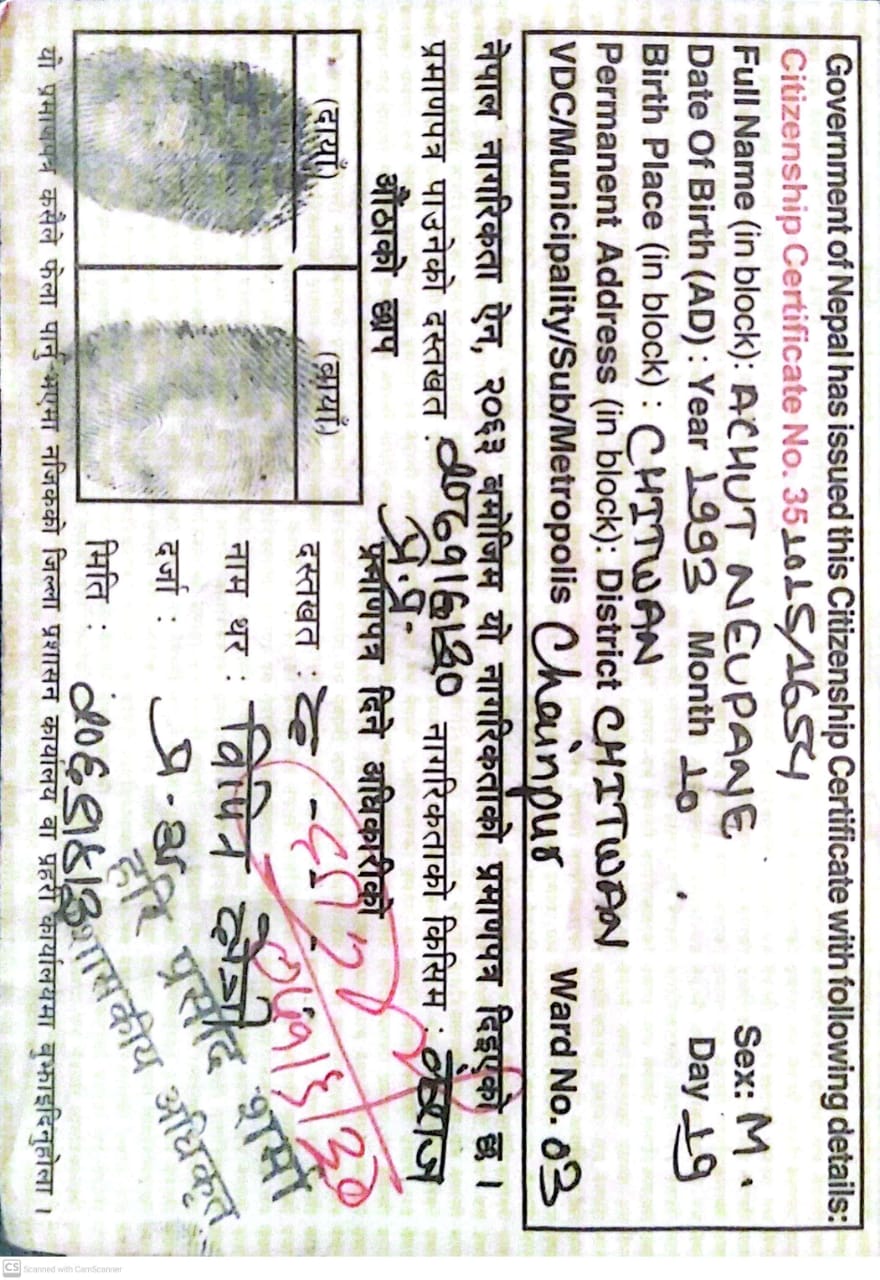 Government of Nepal has issued this Citizenship Certificate with following details:
Citizenship Certificate No. 351015/1654
Full Name (in block): ACHUT NEUPANE Sex: M.
Date Of Birth (AD) : Year 1993 Month 10 Day 19
Birth Place (in block) : CHITWAN
Permanent Address (in block): District CHITWAN
VDC/Municipality/Sub/Metropolis Chainpur Ward No. 03
नेपाल नागरिकता ऐन, २०६३ बमोजिम यो नागरिकताको प्रमाणपत्र दिइएको छ ।
प्रमाणपत्र पाउनेको दस्तखत : नागरिकताको किसिम : वंशज
प्र.प्र.
औंठाको छाप
प्रमाणपत्र दिने अधिकारीको
(दायाँ) (बायाँ)
दस्तखत :
नाम थर : विपिन
दर्जा : प्र.अ
मिति :
हरि प्रसाद शर्मा
शासकीय अधिकृत
यो प्रमाणपत्र कसैले फेला पार्नु भएमा नजिकको जिल्ला प्रशासन कार्यालय वा प्रहरी कार्यालयमा बुझाइदिनुहोला ।
CS Scanned with CamScanner